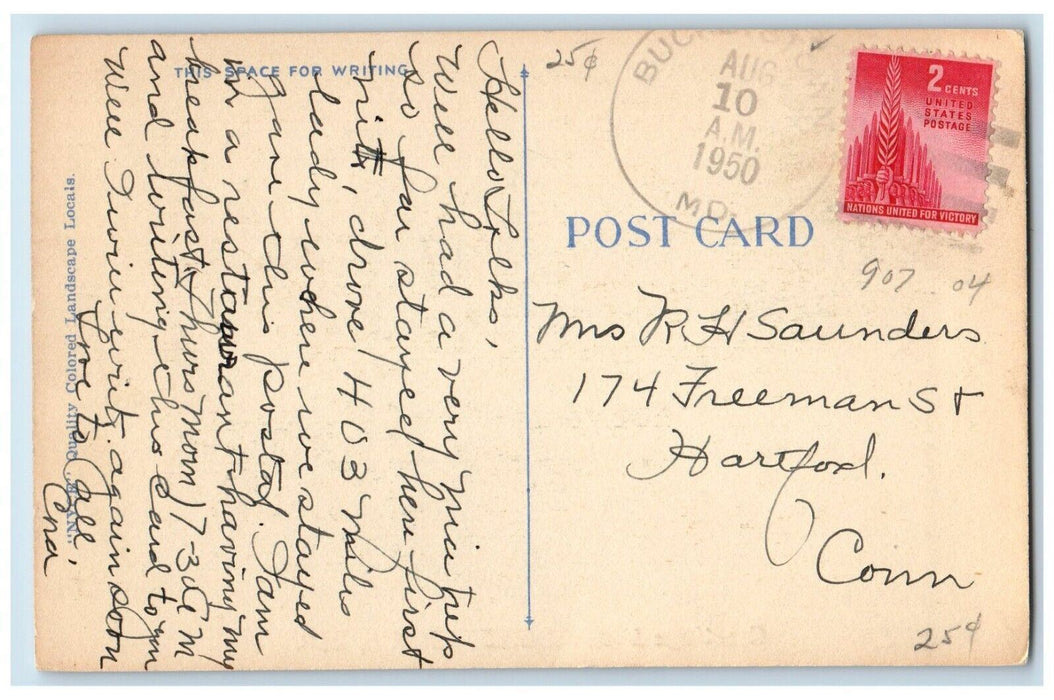 THIS SPACE FOR WRITING
Hello Folks,
Well had a very nice trip
so far stayed here first
nite, drove 403 miles
lady where we stayed
gave this postal. I am
in a restaurant having my
breakfast, (Thurs Morn) 7-30 A M
and writing this card to you
Well I will write again soon
Love to all,
"NYCE" Quality Colored Landscape Locals.
25¢
AUG
10
A.M.
1950
MD.
2 CENTS
UNITED
STATES
POSTAGE
NATIONS UNITED FOR VICTORY
POST CARD
907 04
Mrs R H Saunders
174 Freeman St
Hartford.
Conn
25¢